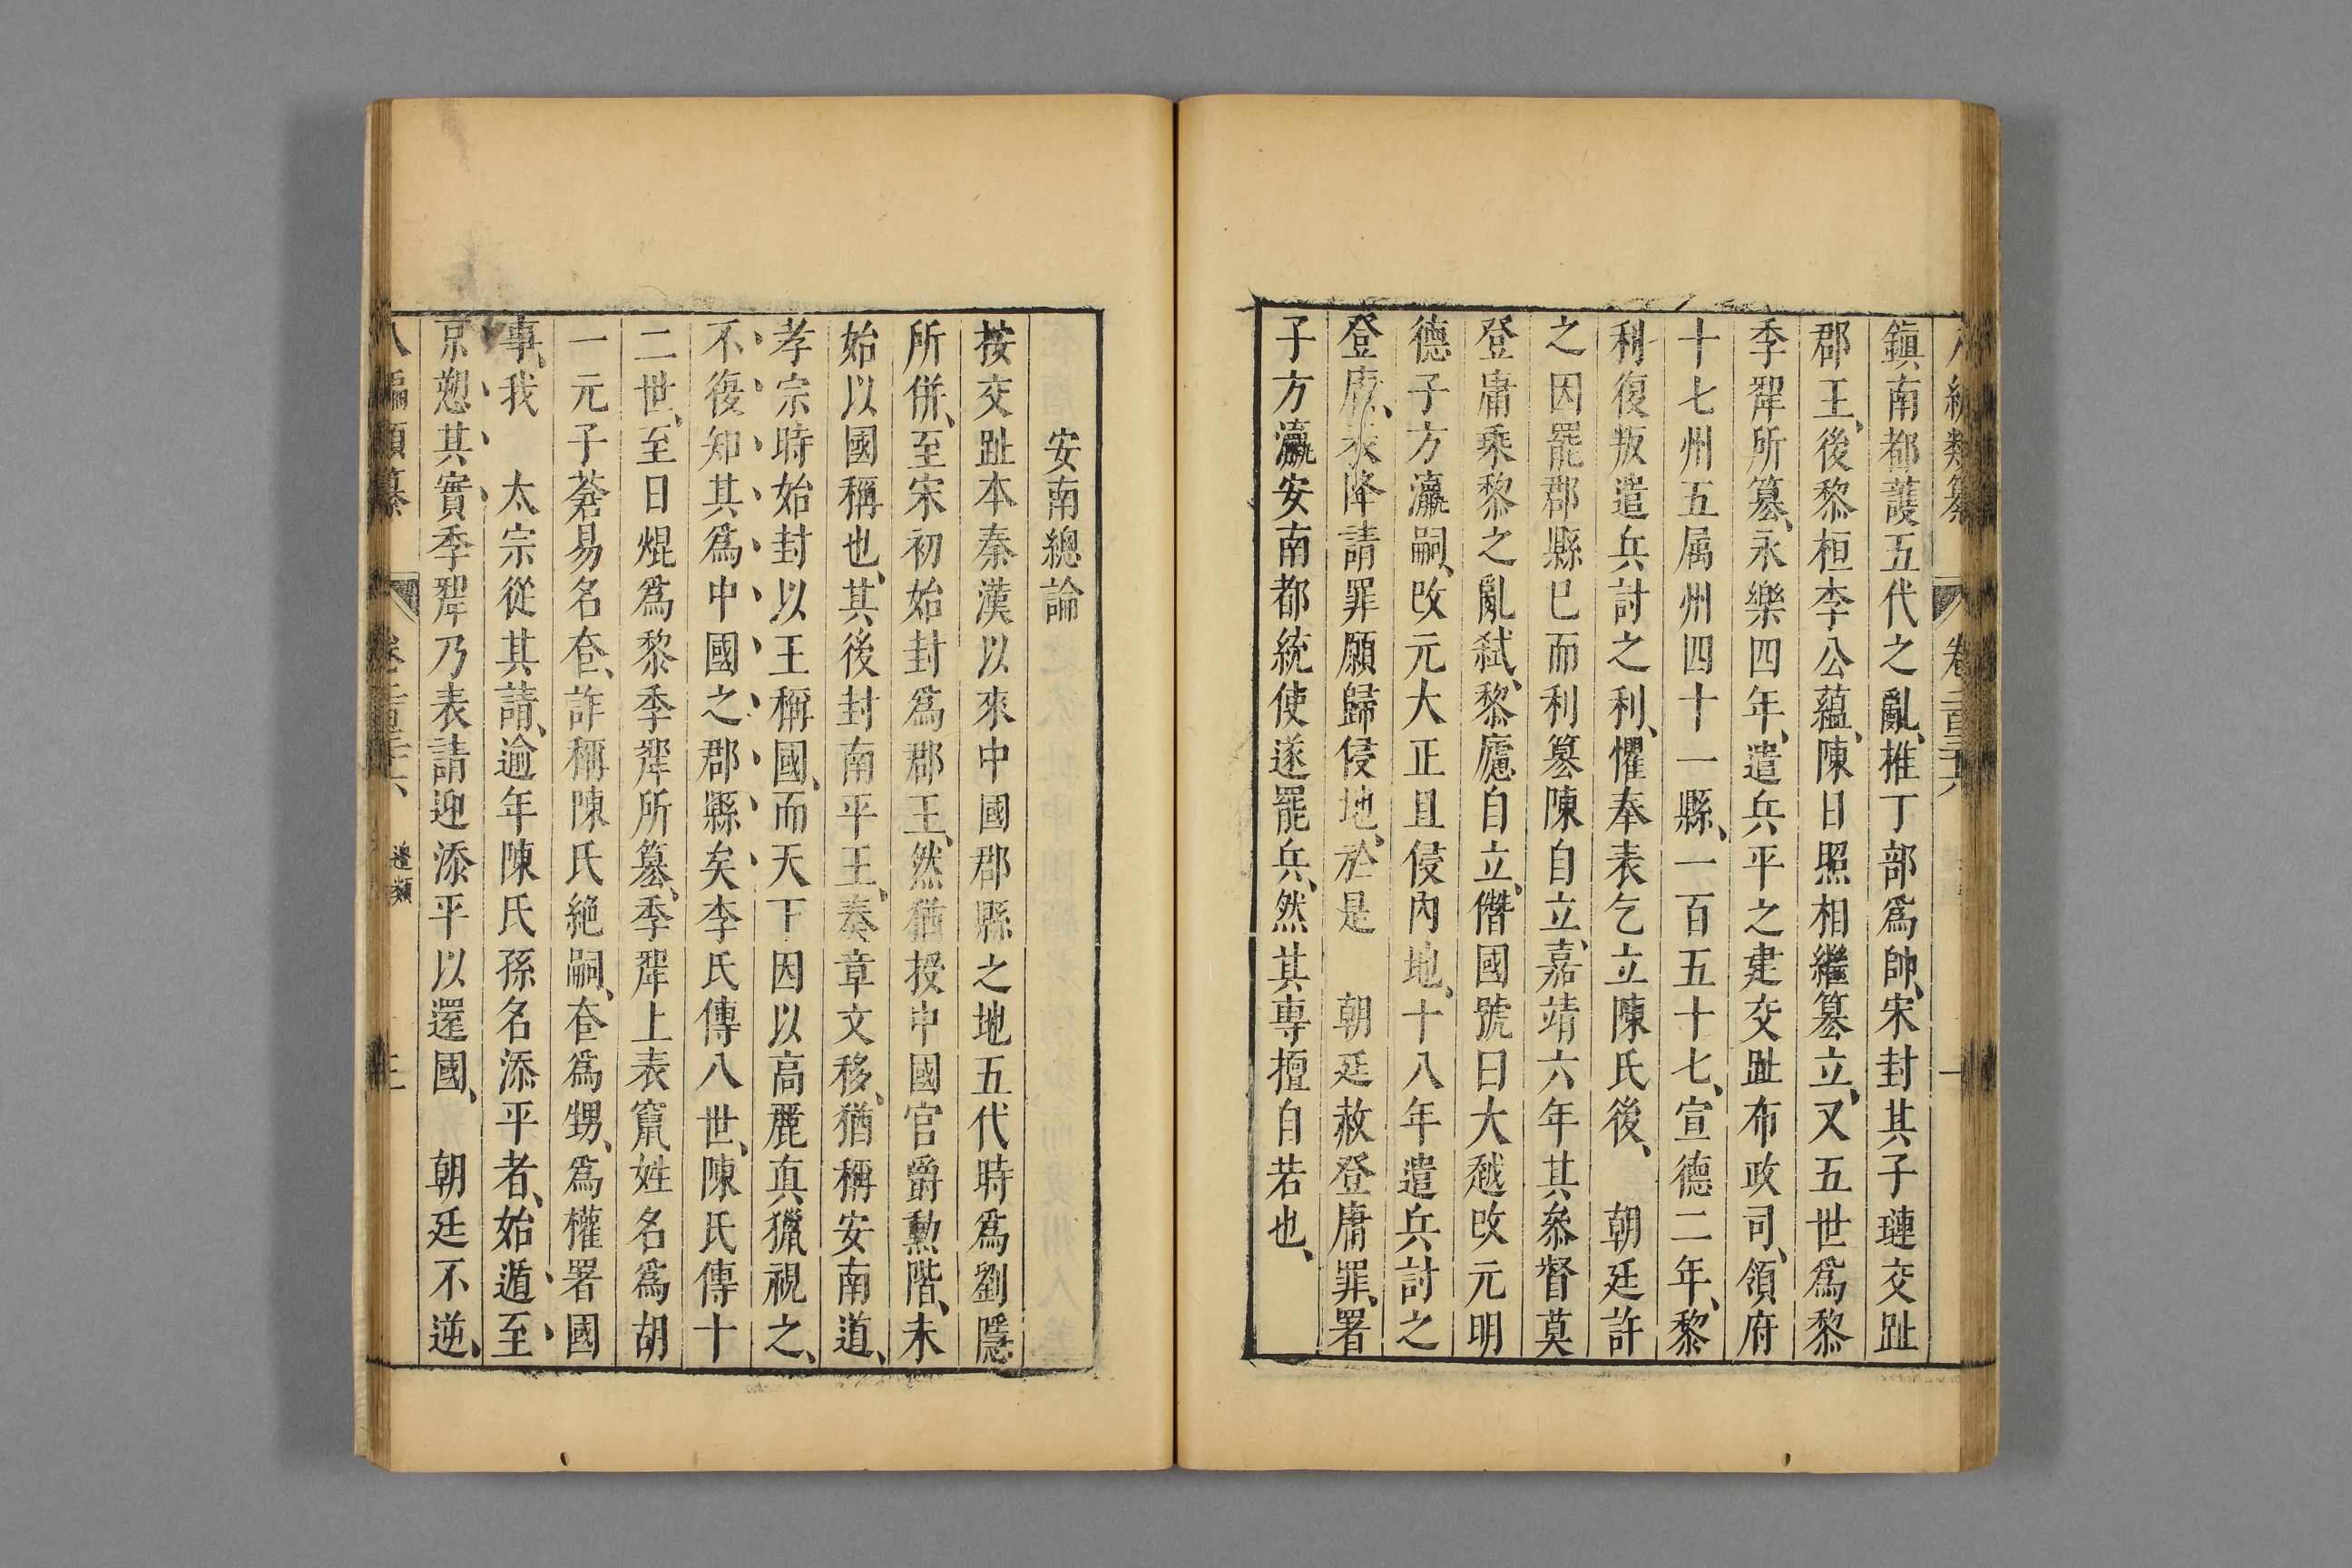 編類纂 卷二百三十六 一
鎮南都護五代之亂、推丁部為帥、宋封其子璉交趾
郡王、後黎桓李公蘊、陳日照相繼篡立、又五世為黎
季犛所篡、永樂四年、遣兵平之建交趾布政司、領府
十七州五属州四十一縣、一百五十七、宣德二年、黎
利復叛遣兵討之利、懼奉表乞立陳氏後、　朝廷許
之因罷郡縣已而利篡陳自立、嘉靖六年其叅督莫
登庸乘黎之亂弑、黎廌自立、僭國號曰大越改元明
德子方瀛嗣、改元大正且侵內地、十八年遣兵討之
登庸、表降請罪願歸侵地、於是　朝廷赦登庸罪、署
子方瀛安南都統使遂罷兵、然其專擅自若也、
安南總論
按交趾本秦漢以來中國郡縣之地五代時為劉隱
所併、至宋初始封為郡王、然猶授中國官爵勲階、未
始以國稱也、其後封南平王、奏章文移、猶稱安南道、
孝宗時始封以王稱國、而天下因以高麗真獵視之、
不復知其為中國之郡縣矣李氏傳八世、陳氏傳十
二世、至日焜為黎季犛所篡、季犛上表竄姓名為胡
一元子蒼易名𡗨、詐稱陳氏絶嗣、𡗨為甥、為權署國
事、我　太宗從其請、逾年陳氏孫名添平者、始遁至
京愬其實季犛乃表請迎添平以還國、　朝廷不逆、
八編類纂 卷二百三十六、 邊類 二